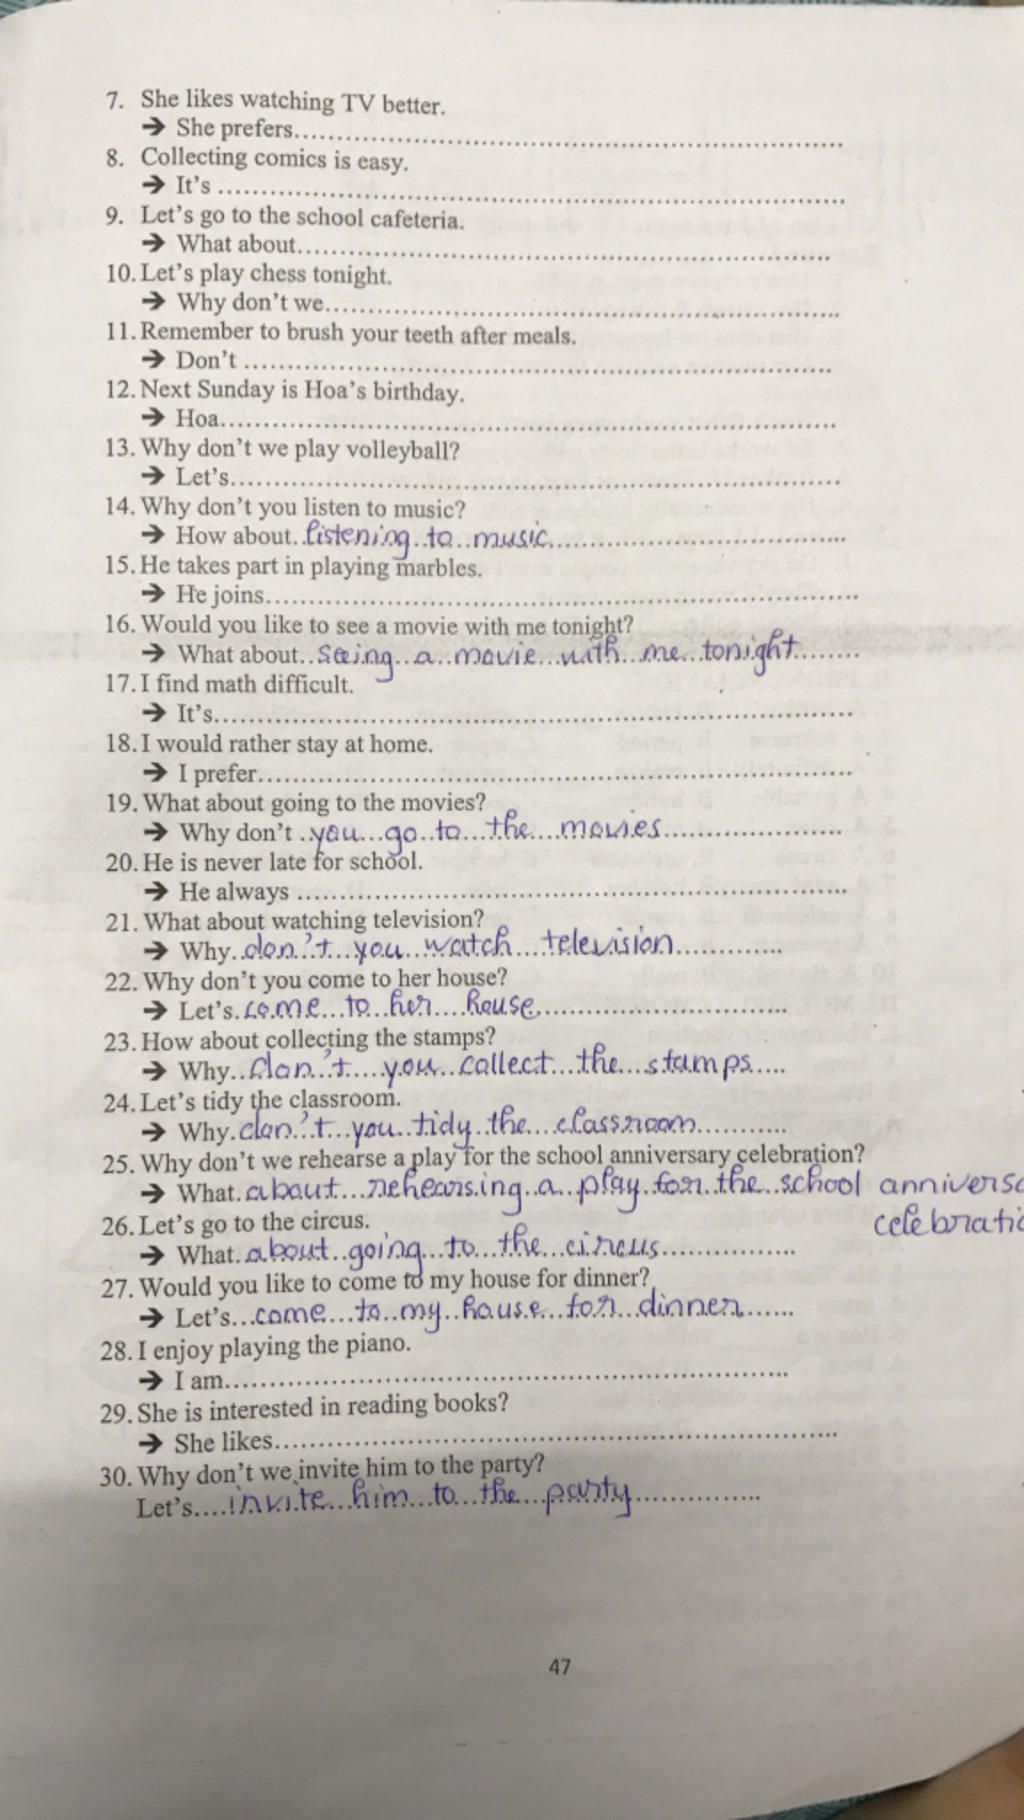 7. She likes watching TV better.
➔ She prefers....................
8. Collecting comics is easy.
➔ It's ....................
9. Let's go to the school cafeteria.
➔ What about....................
10. Let's play chess tonight.
➔ Why don't we....................
11. Remember to brush your teeth after meals.
➔ Don't ....................
12. Next Sunday is Hoa's birthday.
➔ Hoa....................
13. Why don't we play volleyball?
➔ Let's....................
14. Why don't you listen to music?
➔ How about listening to music....................
15. He takes part in playing marbles.
➔ He joins....................
16. Would you like to see a movie with me tonight?
➔ What about seeing a movie with me tonight........
17. I find math difficult.
➔ It's....................
18. I would rather stay at home.
➔ I prefer....................
19. What about going to the movies?
➔ Why don't you go to the movies....................
20. He is never late for school.
➔ He always ....................
21. What about watching television?
➔ Why don't you watch television.............
22. Why don't you come to her house?
➔ Let's come to her house....................
23. How about collecting the stamps?
➔ Why don't you collect the stamps.....
24. Let's tidy the classroom.
➔ Why don't you tidy the classroom...........
25. Why don't we rehearse a play for the school anniversary celebration?
➔ What about rehearsing a play for the school anniversa
celebratio
26. Let's go to the circus.
➔ What about going to the circus................
27. Would you like to come to my house for dinner?
➔ Let's come to my house for dinner......
28. I enjoy playing the piano.
➔ I am....................
29. She is interested in reading books?
➔ She likes....................
30. Why don't we invite him to the party?
Let's invite him to the party...............
47